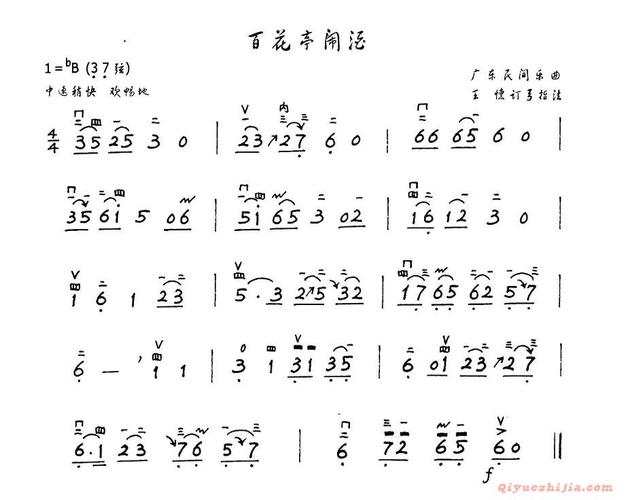 百花亭闹酒
1=ᵇB (3 7 弦)
广东民间乐曲
中速稍快 欢畅地
4/4 35 25 3 0 | 23 27 6 0 | 66 65 6 0 |
35 61 5 06 | 51 65 3 02 | 16 12 3 0 |
1 6 1 23 | 5. 3 25 32 | 17 65 62 57 |
6 — ’ 1 1 | 3 1 31 35 | 6 01 23 27 |
6.1 23 76 57 | 6 72 65 60 ‖
f
Qiyuezhijia.com